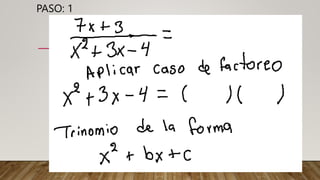 PASO: 1
7x+3
x²+3x-4 =
Aplicar caso de factoreo
x²+3x-4 = ( )( )
Trinomio de la forma
x² + bx+c